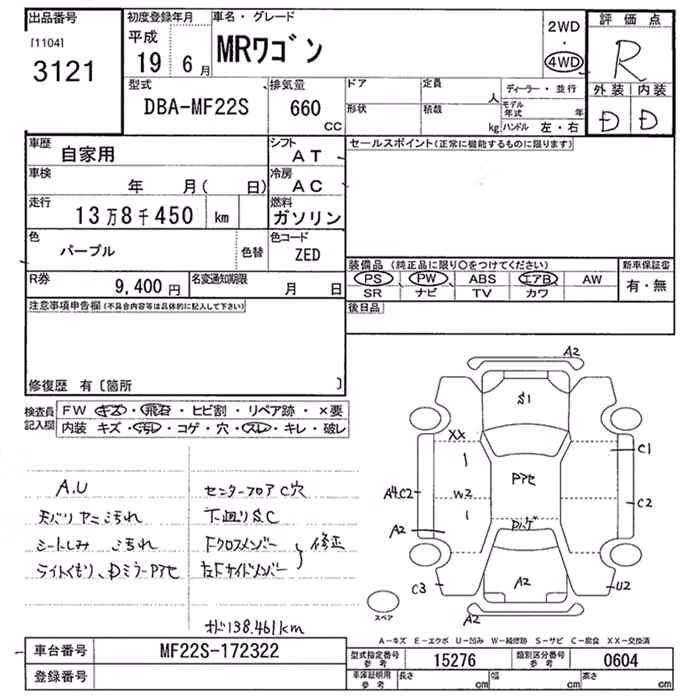 出品番号
[1104]
3121
初度登録年月
平成
19 6月
車名・グレード
MRワゴン
2WD
・
4WD
評価点
R
外装 内装
D D
型式
DBA-MF22S
排気量
660
CC
ドア
定員
人
形状
積載
kg
ディーラー・並行
モデル年式 年
ハンドル 左・右
車歴
自家用
シフト
AT
車検
年 月( 日)
冷房
AC
走行
13万8千450 km
燃料
ガソリン
色
パープル
色替
色コード
ZED
R券
9,400円
名変通知期限
月 日
セールスポイント(正常に機能するものに限ります)
装備品 (純正品に限り○をつけてください)
PS PW ABS エアB AW
SR ナビ TV カワ
新車保証書
有・無
後日品
注意事項申告欄(不具合内容等は具体的に記入して下さい)
修復歴 有〔箇所 〕
検査員記入欄
FW キズ・飛石・ヒビ割・リペア跡・×要
内装 キズ・汚レ・コゲ・穴・スレ・キレ・破レ
A.U
天バリヤニ汚れ
シートしみ 汚れ
ライトくもり、DミラーPアセ
センターフロアC穴
下廻りS.C
Fクロスメンバー
左Fサイドメンバー
修正
オド138.461km
A2
S1
XX
C1
Pアセ
W2
A4.C2
C2
A2
Dハゲ
C3
A2
U2
A2
スペア
A−キズ E−エクボ U−凹み W−補修跡 S−サビ C−腐食 XX−交換済
車台番号
MF22S-172322
登録番号
型式指定番号 参考
15276
類別区分番号 参考
0604
車庫証明用 参考
長さ cm
幅 cm
高さ cm